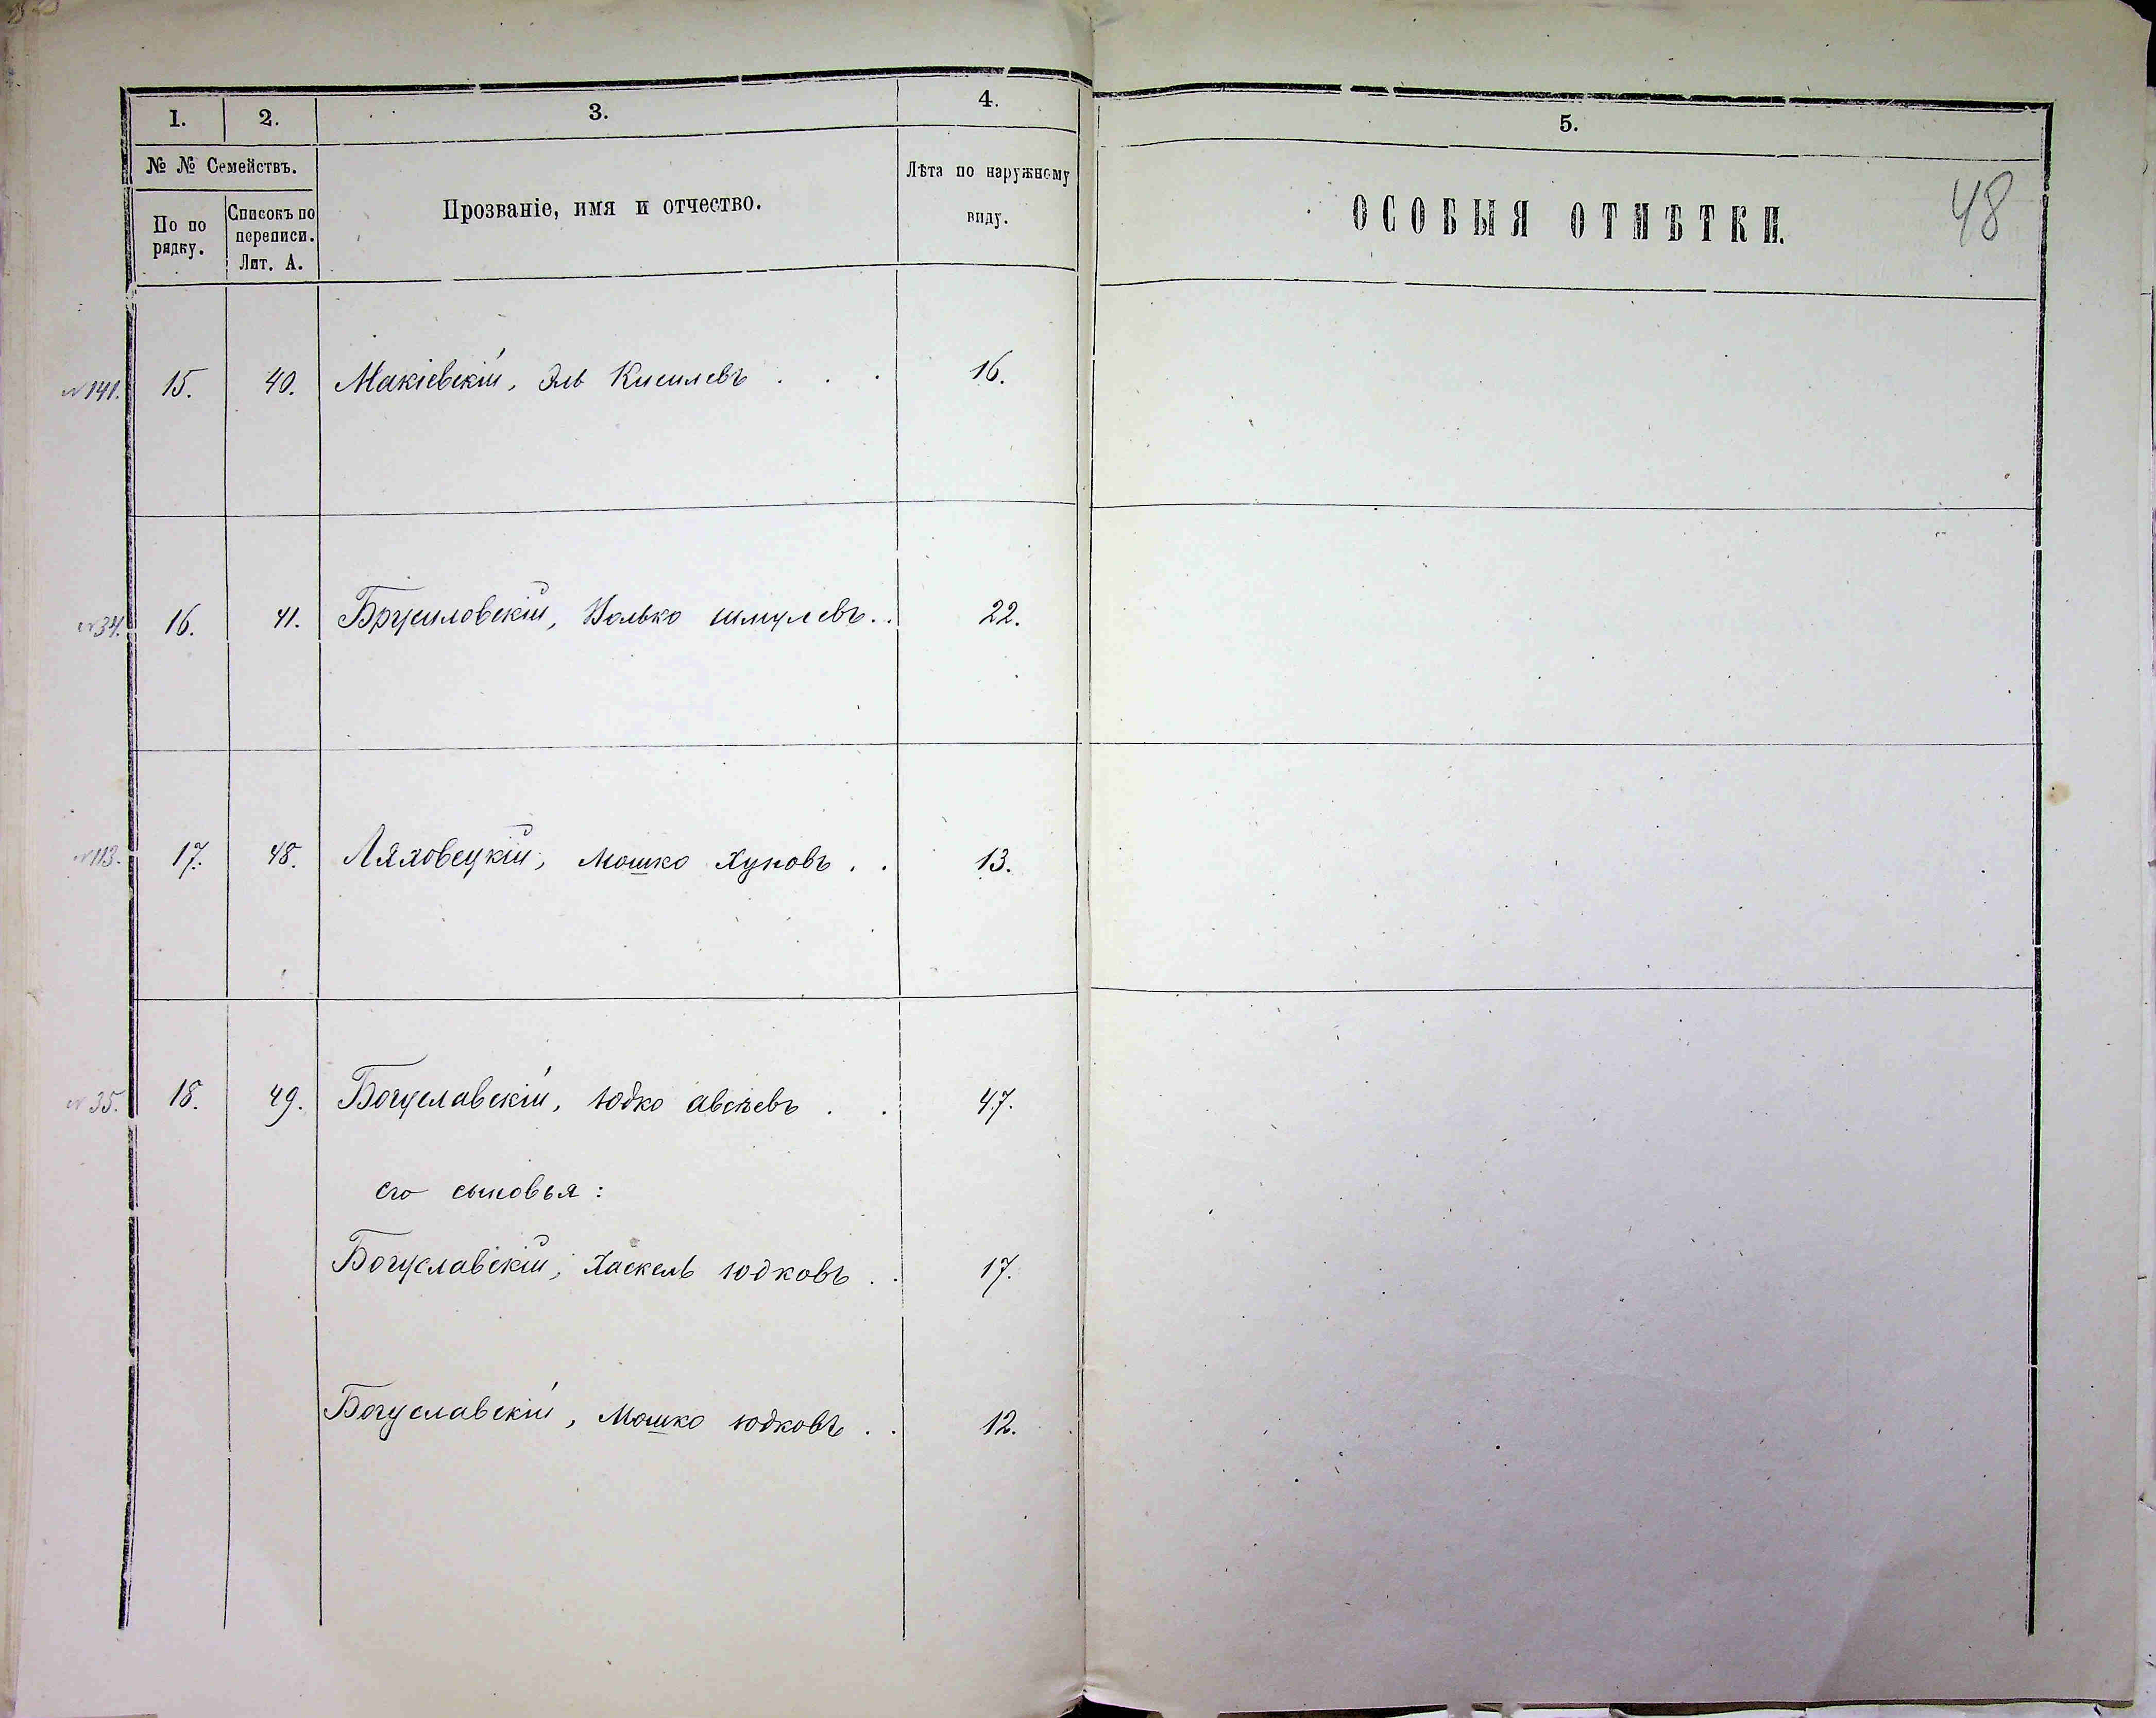 1. 2. 3. 4. 5.
№ № Семействъ.
По по рядку.
Списокъ по переписи. Лит. А.
Прозваніе, имя и отчество.
Лѣта по наружному виду.
ОСОБЫЯ ОТМѢТКИ.
48
№ 141. 15. 40. Макіевскій, Эль Кисилевъ . . . 16.
№ 34. 16. 41. Брусиловскій, Волько шмулевъ . . 22.
№ 113. 17. 48. Ляховецкій, Мошко Хуновъ . . 13.
№ 35. 18. 49. Богуславскій, Юдко авсѣевъ . . 47.
его сыновья:
Богуславскій, Хаскель юдковъ . . 17.
Богуславскій, Мошко юдковъ . . 12.